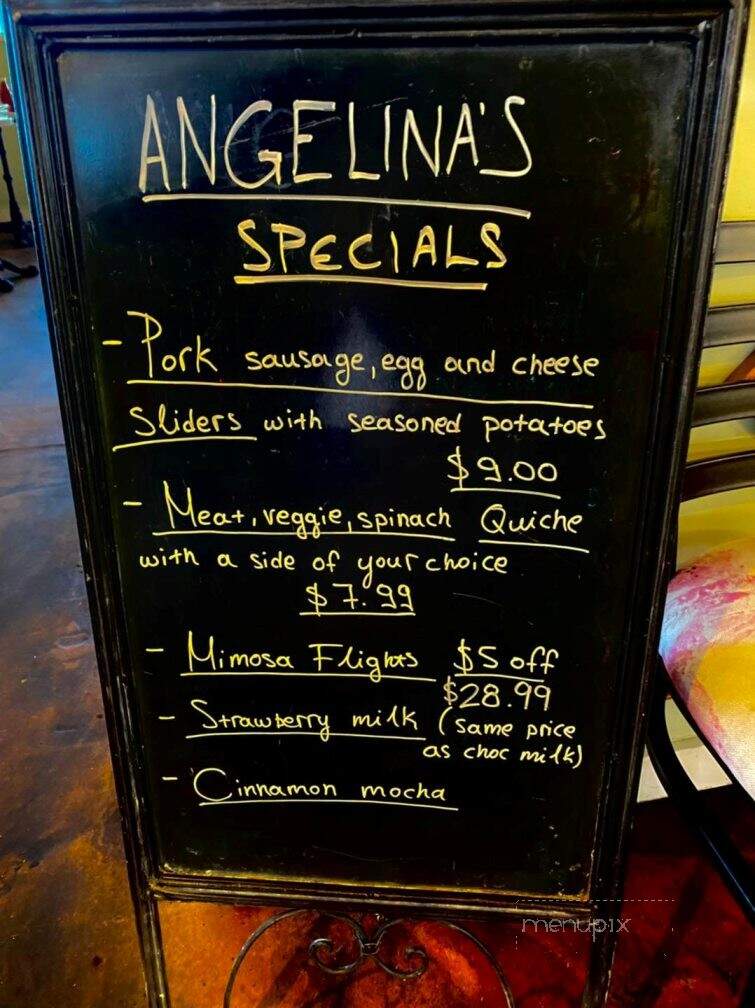 ANGELINA'S
SPECIALS
- Pork sausage, egg and cheese
Sliders with seasoned potatoes
$9.00
- Meat, veggie, spinach Quiche
with a side of your choice
$7.99
- Mimosa Flights $5 off
$28.99
- Strawberry milk (same price
as choc milk)
- Cinnamon mocha
menupix